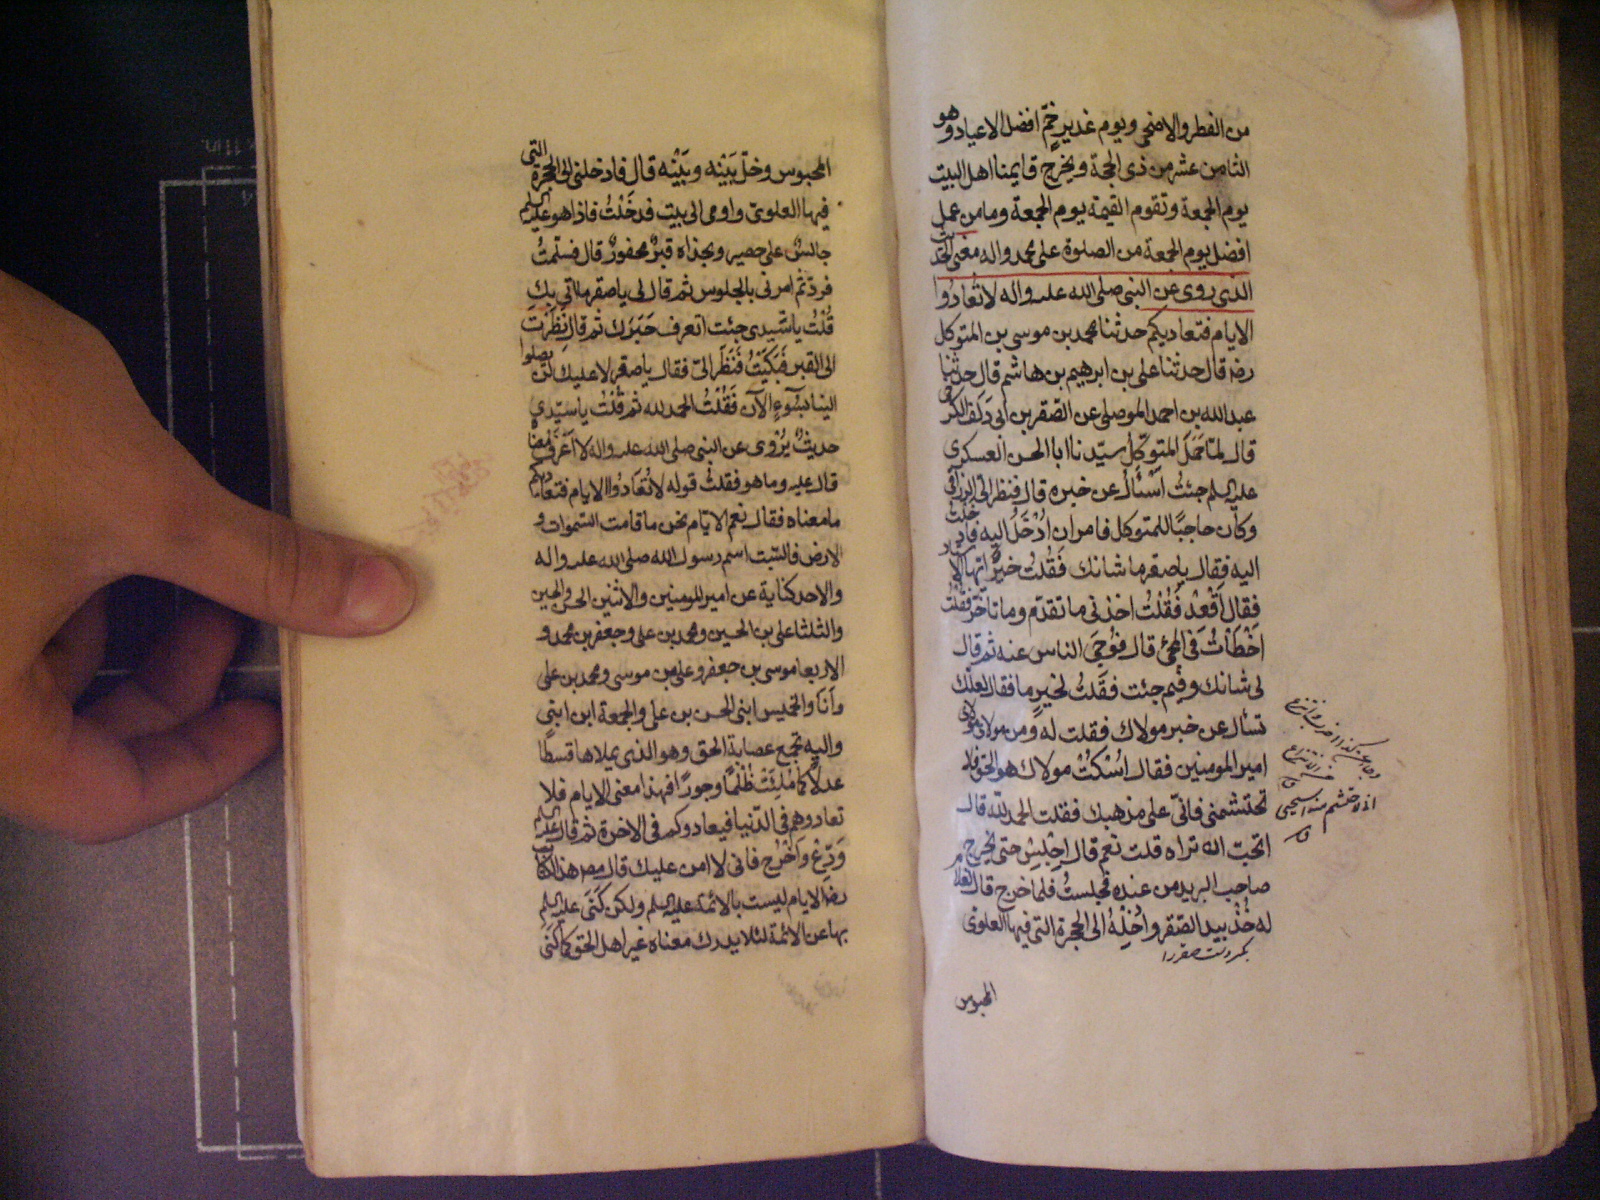 من الفطر والاضحى ويوم غدير خمّ افضل الاعياد وهو
الثامن عشر من ذى الحجة ويخرج قايمنا اهل البيت
يوم الجمعة وتقوم القيمة يوم الجمعة وما من عمل
افضل يوم الجمعة من الصلوة على محمد واله معنى الحديث
الذى روى عن النبى صلى الله عليه واله لا تُعادُوا
الايام فتعاديكم حدثنا محمد بن موسى بن المتوكل
رضه قال حدثنا على بن ابرهيم بن هاشم قال حدثنا
عبدالله بن احمد الموصلى عن الصّقر بن ابى دَلَف الكرخى
قال لمّا حَمَلَ المتوكّل سيّدنا ابا الحسن العسكرى
عليه السلم جئتُ اَسْئَالُ عن خبره قال فنظر الىّ الزراقى
وكان حاجبًا للمتوكل فامر ان اُدْخَلَ اليه فادخلت
اليه فقال يا صقر ما شانك فَقُلتُ خيرٌ ايّها الاستاد
فقال اُقْعُدْ فَقُلْتُ اخذنى ما تقدّم وما تاخّر فقلتُ
اَخْطَأتُ فى المجئ قال فَوَجَى الناس عنه ثم قال
لى شانك وفيم جئت فقُلتُ لخيرٍ ما فقال لعلّك
تسأل عن خبر مولاك فقلت له ومن مولاى مولاى
امير المومنين فقال اُسْكُتْ مولاك هو الحق فلا
تحتشمنى فانّى على مذهبك فقلت الحمد لله قال
اتحبّ ان تراه قلت نعم قال اِجْلِسْ حتى يخرج
صاحب البريد من عنده فجلستُ فلما خرج قال لغلام
له خُذْ بيد الصّقر واَدْخِلْه الى الحجرة التى فيها العلوىّ
المحبوس
المحبوس وخلّ بَيْنَه وبَيْنَه قال فادخلنى الى الحجرة التى
فيها العلوىّ واومى الى بيت فدخَلْتُ فاذا هو عليه السلم
جالسٌ على حصير وبحذاه قبرٌ محفورٌ قال فسلّمتُ
فردّ ثم امرنى بالجلوس ثم قال لى يا صقر ما اتى بِكَ
قُلْتُ يا سَيّدى جئت اتعرف خَبَرَك ثم قال نَظَرْتُ
الى القبر فَبَكَيْتُ فَنَظَرَ الىّ فقال يا صقر لا عليك لَنْ يصلوا
الينا بسُوءٍ الآن فَقُلْتُ الحمد لله ثم قُلْتُ يا سيّدى
حديثٌ يُرْوى عن النبى صلى الله عليه واله لا اَعْرَفُ معناه
قال عليه وما هو فقلتُ قوله لا تُعَادُوا الايام فتعاديكم
ما معناه فقال نعم الايّام نحن ما قامت السّموات و
الارض فالسّبت اسم رسول الله صلى الله عليه واله
والاحد كناية عن امير المومنين والاثنين الحسن والحسين
والثلثا على بن الحسين ومحمد بن على وجعفر بن محمد و
الاربعا موسى بن جعفر وعلى بن موسى ومحمد بن على
وأنا والخميس ابنى الحسن بن على والجمعة ابن ابنى
واليه تجمع عصابة الحق وهو الذى يملاها قسطًا
عدلًا كما مُلِئَتْ ظُلمًا وجورًا فهذا معنى الايام فلا
تعادوهم فى الدّنيا فيعادوكم فى الاخرة ثم قال عليه السلم
وَدِّعْ واخْرُج فانى لا امن عليك قال مص هذا الكتاب
رضه الايام ليست بالائمّة عليه السلم ولكن كَنَى عليه السلم
بها عن الائمّة لئلا يدرك معناه غير اهل الحق كما كَنَى